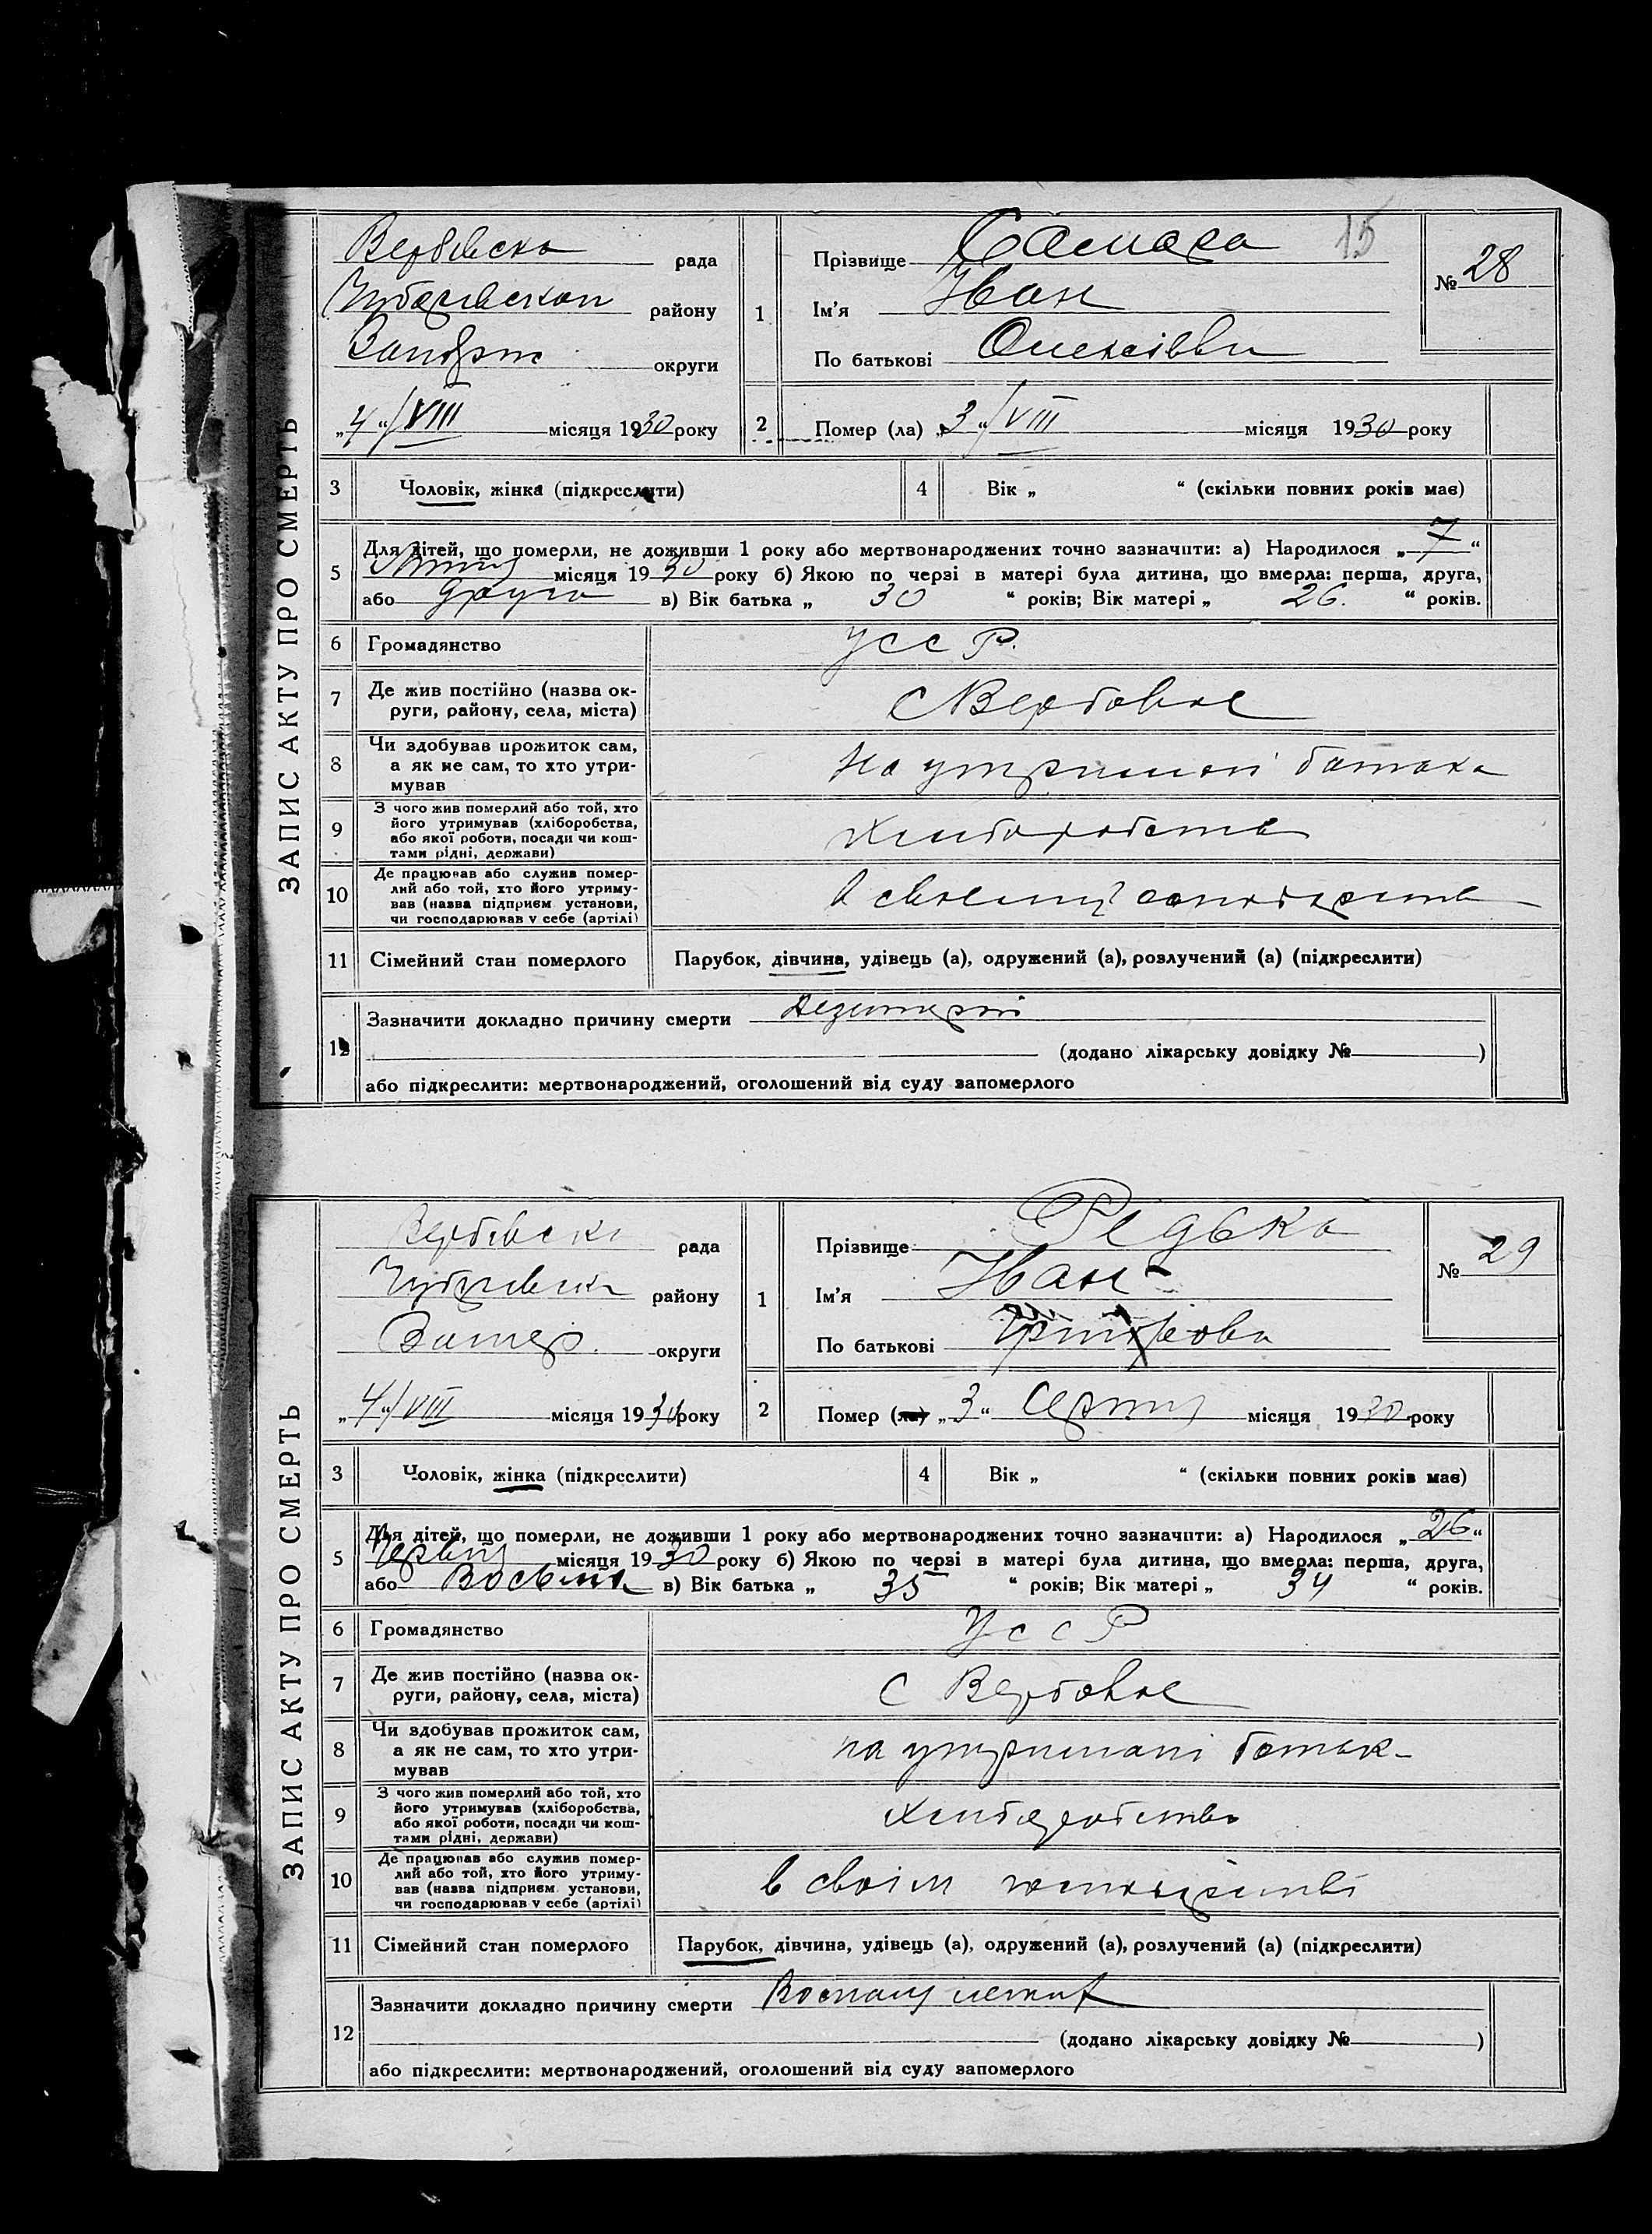 ЗАПИС АКТУ ПРО СМЕРТЬ
15
Вербівська рада
району
округи
1
Прізвище Самара
Ім'я Иван
По батькові Олексіевич
№ 28
„4“/VIII місяця 1930 року
2 Помер (ла) „3“/VIII місяця 1930 року
3 Чоловік, жінка (підкреслити)
4 Вік „ “ (скільки повних років має)
5 Для дітей, що померли, не доживши 1 року або мертвонароджених точно зазначити: а) Народилося „7“
місяця 1930 року б) Якою по черзі в матері була дитина, що вмерла: перша, друга,
або друга в) Вік батька „ 30 “ років; Вік матері „ 26. “ років.
6 Громадянство УССР.
7 Де жив постійно (назва ок-
руги, району, села, міста) с Вербовое
8 Чи здобував прожиток сам,
а як не сам, то хто утри-
мував
на утримані батька
9 З чого жив померлий або той, хто
його утримував (хліборобства,
або якої роботи, посади чи кош-
тами рідні, держави)
хліборобство
10 Де працював або служив помер-
лий або той, хто його утриму-
вав (назва підприєм. установи,
чи господарював у себе (артілі)
в своему
11 Сімейний стан померлого Парубок, дівчина, удівець (а), одружений (а), розлучений (а) (підкреслити)
12 Зазначити докладно причину смерти
(додано лікарську довідку № )
або підкреслити: мертвонароджений, оголошений від суду запомерлого
ЗАПИС АКТУ ПРО СМЕРТЬ
Вербівська рада
району
округи
1
Прізвище Редька
Ім'я Иван
По батькові
№ 29
„4“/VIII місяця 1930 року
2 Помер (ла) „3“ Серпня місяця 1930 року
3 Чоловік, жінка (підкреслити)
4 Вік „ “ (скільки повних років має)
5 Для дітей, що померли, не доживши 1 року або мертвонароджених точно зазначити: а) Народилося „26“
Червня місяця 1930 року б) Якою по черзі в матері була дитина, що вмерла: перша, друга,
або Восьма в) Вік батька „ 35 “ років; Вік матері „ 34 “ років.
6 Громадянство УССР
7 Де жив постійно (назва ок-
руги, району, села, міста) с Вербовое
8 Чи здобував прожиток сам,
а як не сам, то хто утри-
мував
на утримані батьк-
9 З чого жив померлий або той, хто
його утримував (хліборобства,
або якої роботи, посади чи кош-
тами рідні, держави)
хліборобство
10 Де працював або служив помер-
лий або той, хто його утриму-
вав (назва підприєм. установи,
чи господарював у себе (артілі)
в своїм господарстві
11 Сімейний стан померлого Парубок, дівчина, удівець (а), одружений (а), розлучений (а) (підкреслити)
12 Зазначити докладно причину смерти
(додано лікарську довідку № )
або підкреслити: мертвонароджений, оголошений від суду запомерлого